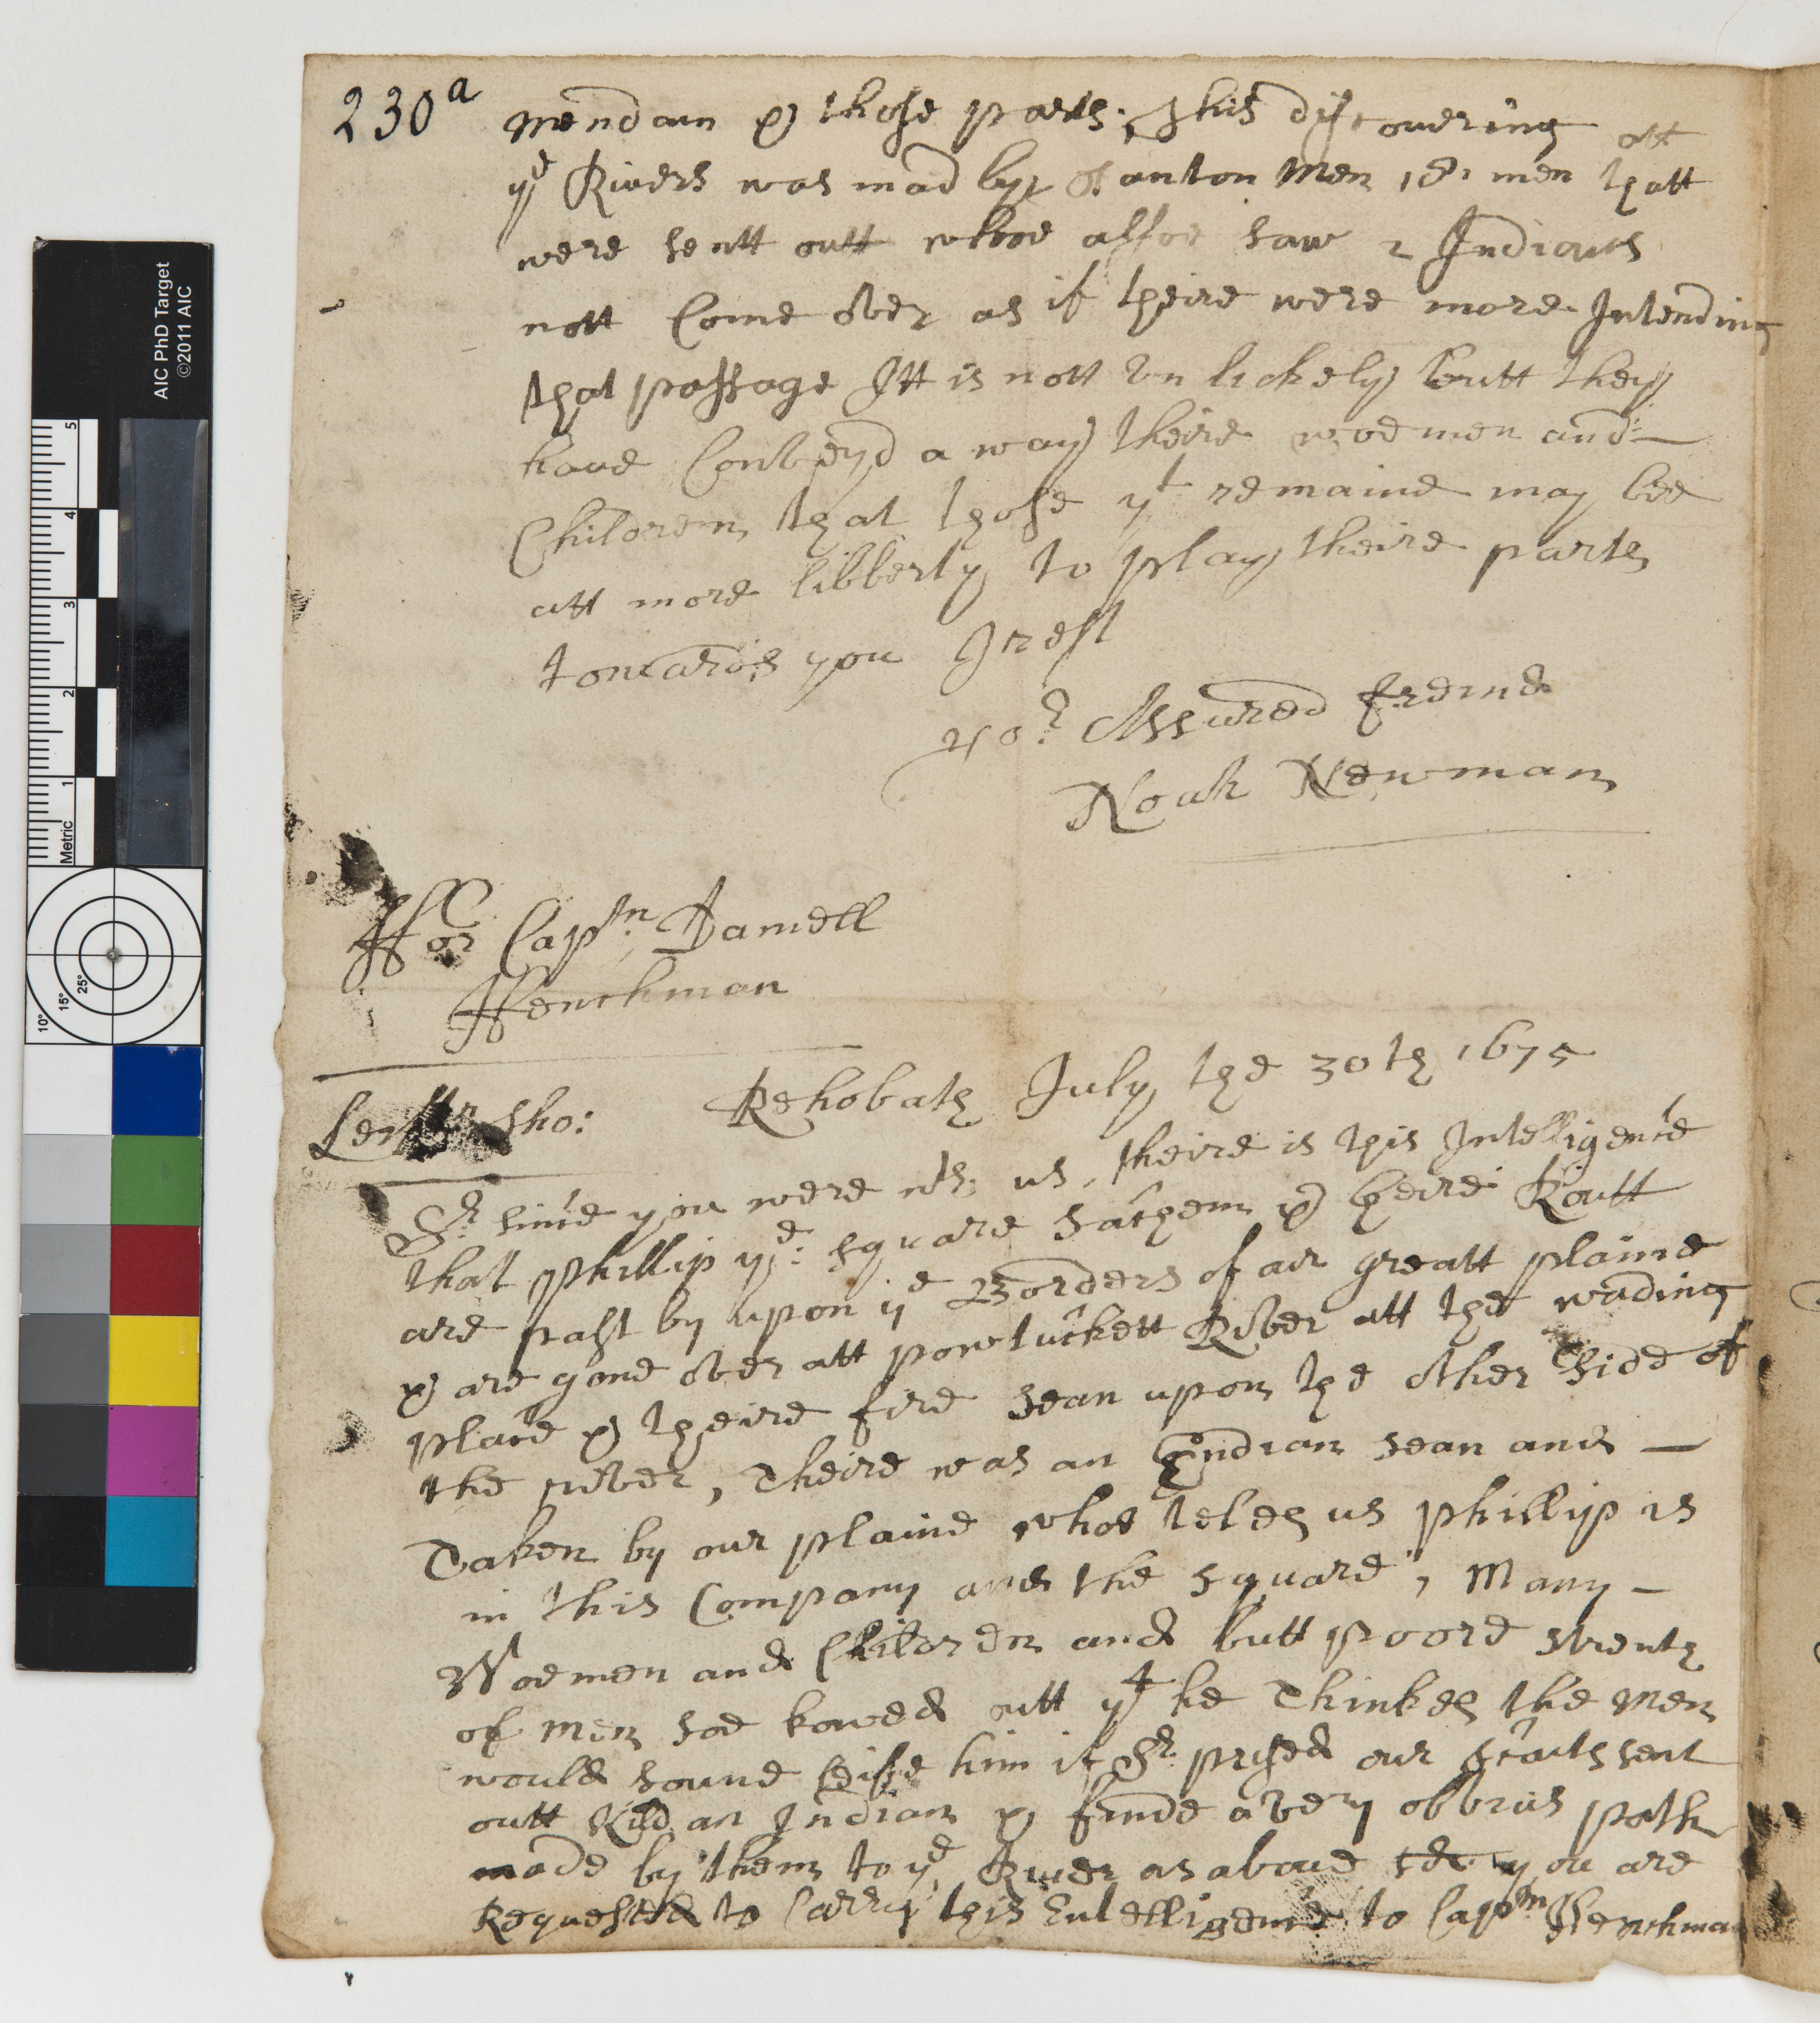 230a
mendam & those parts; This discouering att
ye Riuers was mad by Stanton Men, 8, men thatt
were sentt outt whoe allsoe saw 2 Indians
nott Come over as if theire were more Intending
that passage Itt is nott vn lickely butt they
haue Conveyd a way theire woemen and
Children that those yt remaine may bee
att more libberty to play theire parts
towards you I rest
yor Assured freind
Noah Newman
For Captn Daniell
Henchman
Rehobath July the 30th 1675
Leut Sho:
Sr since you were wth us, theire is this Intelligence
that Phillip ye: square sachem & heire Routt
are past by upon ye Borders of our greatt plaine
& are gone over att powtuckett River att the wading
place & theire fire sean upon the other side of
the river, Theire was an Indian sean and
Taken by our plaine whoe teles us phillip is
in this Company and the square, Many
Woemen and Children and butt poore strenth
of Men soe kowed outt yt he Thinkes the Men
would soune seise him if Sr prised our scouts sent
outt Kild an Indian & finde a very obvius path
made by them to ye River as aboue you are
Requested to Carry this Entelligence to Captn Henchman
AIC PhD Target
©2011 AIC
5
4
3
2
1
Metric
10° 15° 25°